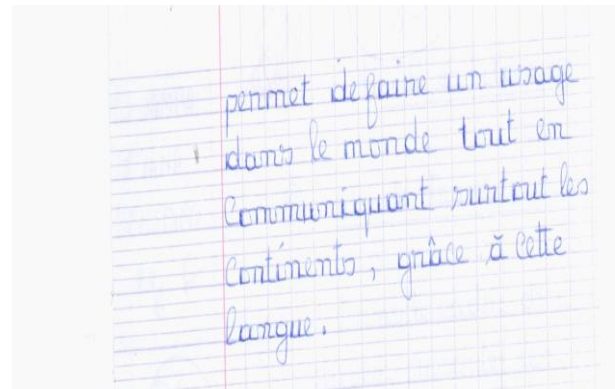 permet de faire un usage
dans le monde tout en
Communiquant surtout les
Continents, grâce à cette
langue.